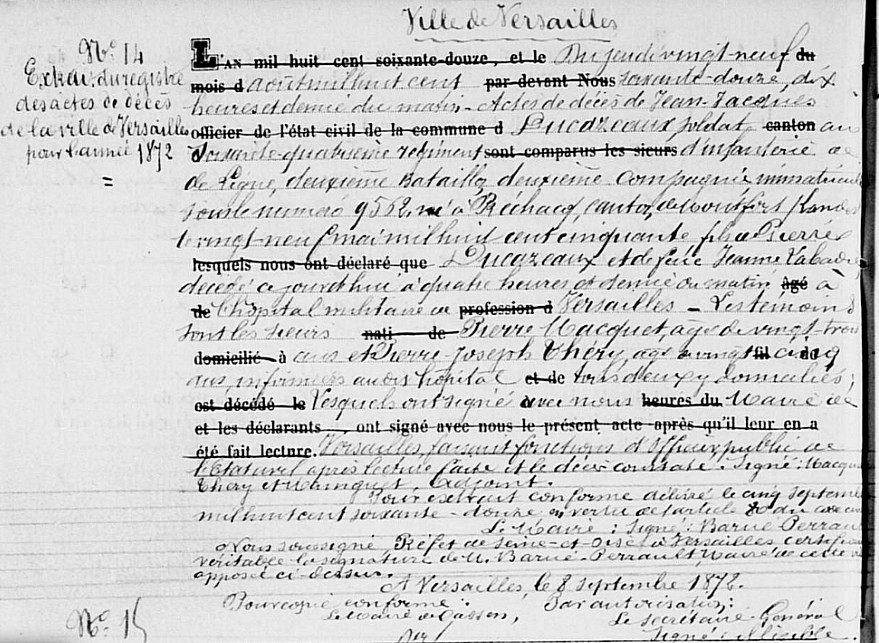 Ville de Versailles
No. 14
Extrait du registre
des actes de décès
de la ville de Versailles
pour l'année 1872
=
L'AN mil huit cent soixante-douze, et le Du jeudi vingt-neuf du
mois d août mil huit cent par-devant Nous soixante-douze, dix
heures et demie du matin - Actes de décès de Jean-Jacques
officier de l'état civil de la commune d Ducazeaux soldat canton au
d soixante-quatrième régiment sont comparus les sieurs d'infanterie de
de ligne, deuxième Bataillon deuxième compagnie immatriculé
sous le numéro 9562 né à canton de Montfort
le vingt-neuf mai mil huit cent cinquante fils Pierre
lesquels nous ont déclaré que Ducazeaux et de feue Jeanne Labadie
décédé ce jourd'hui à quatre heures et demie du matin âgé à
de l'hopital militaire de profession d Versailles - Les témoins
sont les sieurs nati de Pierre Macquet, âgé de vingt-trois
domicilié à ans et Pierre Joseph Théry, âgé de vingt fil cinq de
ans, infirmiers au dit hopital et de tous deux y domiciliés;
est décédé le Lesquels ont signé avec nous heures du Maire de
et les déclarants, ont signé avec nous le présent acte après qu'il leur en a
été fait lecture. Versailles, faisant fonctions d'officier public de
l'Etat civil après lecture faite et le décès constaté. Signé: Macquet
Théry et adjoint.
Pour extrait conforme délivré le cinq septembre
mil huit cent soixante-douze en vertu de l'article 80 du code
Le Maire: Signé: Barué-Perrault
Nous soussigné Préfet de Seine-et-Oise à Versailles certifions
véritable la signature de M. Barué-Perrault, Maire de cette
apposée ci-dessus.
A Versailles, le 8 septembre 1872.
Pour copie conforme: Par autorisation:
Le Maire de Cassen, Le Secrétaire Général
Signé
No. 15